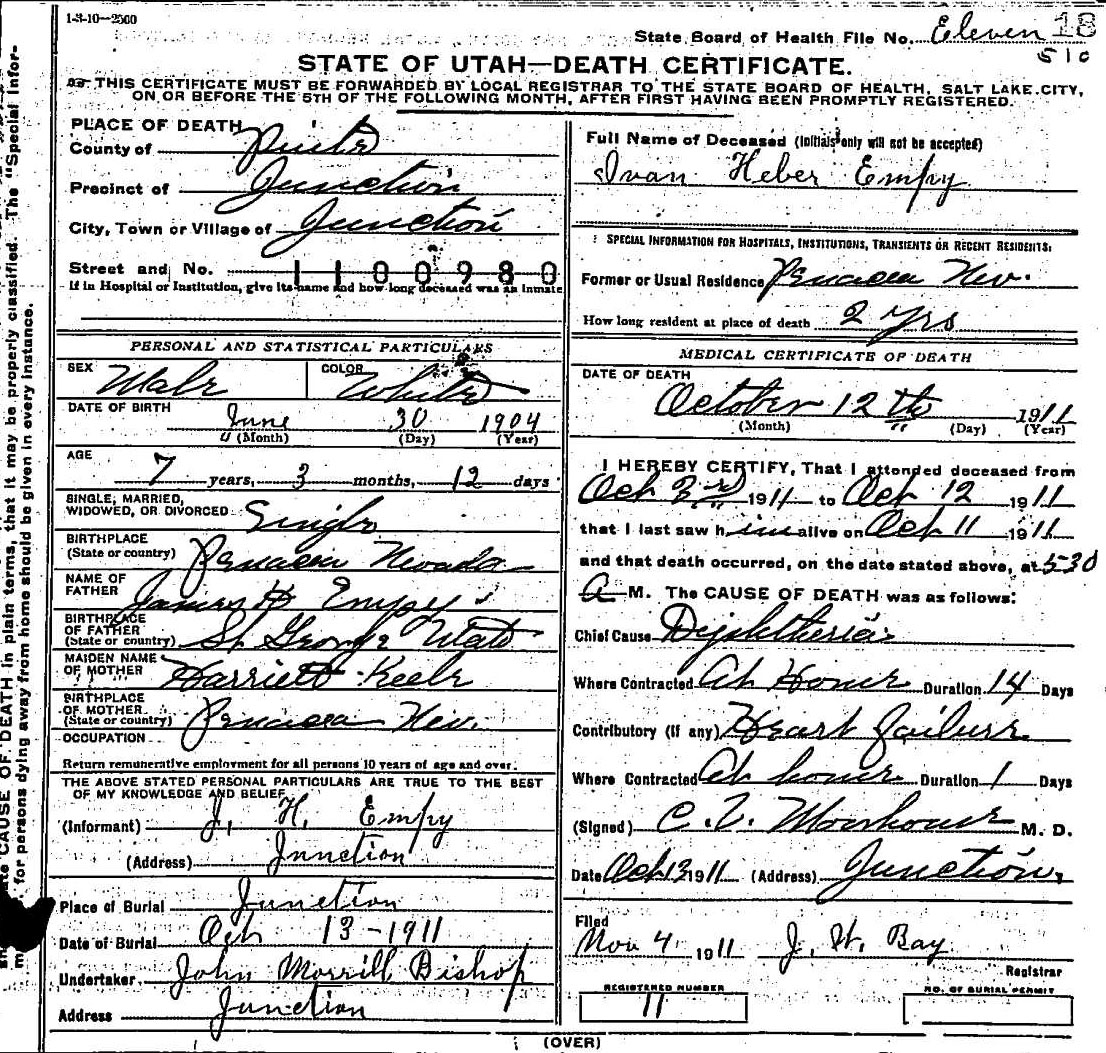 1-3-10—2500
State Board of Health File No. Eleven 18
510
STATE OF UTAH—DEATH CERTIFICATE.
THIS CERTIFICATE MUST BE FORWARDED BY LOCAL REGISTRAR TO THE STATE BOARD OF HEALTH, SALT LAKE CITY,
ON OR BEFORE THE 5TH OF THE FOLLOWING MONTH, AFTER FIRST HAVING BEEN PROMPTLY REGISTERED.
PLACE OF DEATH
County of Piute
Precinct of Junction
City, Town or Village of Junction
Street and No. 1100980
If in Hospital or Institution, give its name and how long deceased was an inmate
PERSONAL AND STATISTICAL PARTICULARS
SEX Male COLOR White
DATE OF BIRTH June 30 1904
(Month) (Day) (Year)
AGE
7 years, 3 months, 12 days
SINGLE, MARRIED,
WIDOWED, OR DIVORCED Single
BIRTHPLACE
(State or country) Panacea Nevada
NAME OF
FATHER James H Empy
BIRTHPLACE
OF FATHER
(State or country) St George Utah
MAIDEN NAME
OF MOTHER Harriett Keele
BIRTHPLACE
OF MOTHER
(State or country) Panacea Nev.
OCCUPATION
Return remunerative employment for all persons 10 years of age and over.
THE ABOVE STATED PERSONAL PARTICULARS ARE TRUE TO THE BEST
OF MY KNOWLEDGE AND BELIEF
(Informant) J. H. Empy
(Address) Junction
Place of Burial Junction
Date of Burial Oct 13-1911
Undertaker John Morrill Bishop
Address Junction
Full Name of Deceased (Initials only will not be accepted)
Ivan Heber Empy
SPECIAL INFORMATION FOR HOSPITALS, INSTITUTIONS, TRANSIENTS OR RECENT RESIDENTS:
Former or Usual Residence Panacea Nev.
How long resident at place of death 2 yrs
MEDICAL CERTIFICATE OF DEATH
DATE OF DEATH
October 12th 1911
(Month) (Day) (Year)
I HEREBY CERTIFY, That I attended deceased from
Oct 3rd 1911 to Oct 12 1911
that I last saw him alive on Oct 11 1911
and that death occurred, on the date stated above, at 5-30
A M. The CAUSE OF DEATH was as follows:
Chief Cause Diphtheria
Where Contracted At Home Duration 14 Days
Contributory (If any) Heart failure
Where Contracted At home Duration 1 Days
(Signed) C. T. Moorhouse M. D.
Date Oct 13 1911 (Address) Junction.
Filed
Nov 4 1911 J. W. Bay
Registrar
REGISTERED NUMBER
11
NO. OF BURIAL PERMIT
(OVER)
CAUSE OF DEATH in plain terms, that it may be properly classified. The "Special Infor-
for persons dying away from home should be given in every instance.